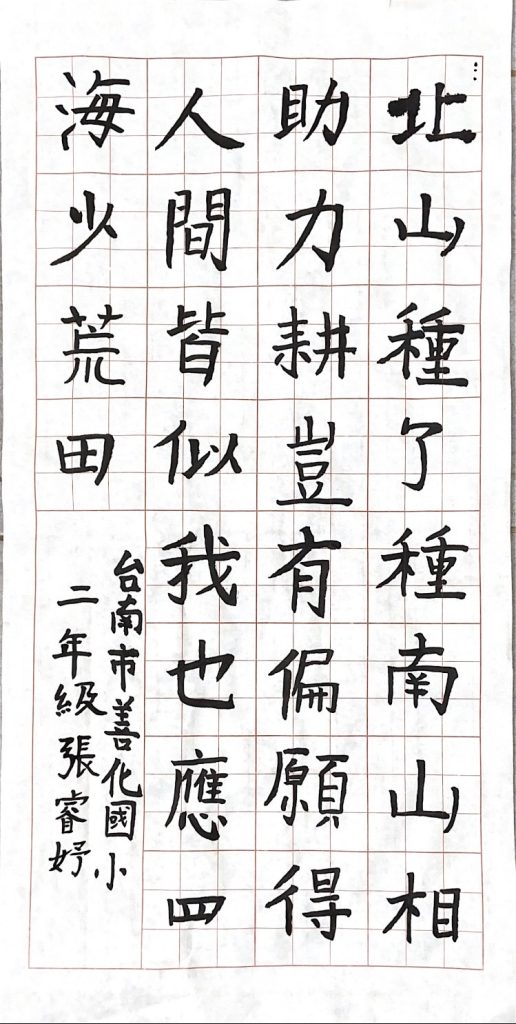 北山種了種南山相
助力耕豈有偏願得
人間皆似我也應四
海少荒田
台南市善化國小
二年級張睿妤